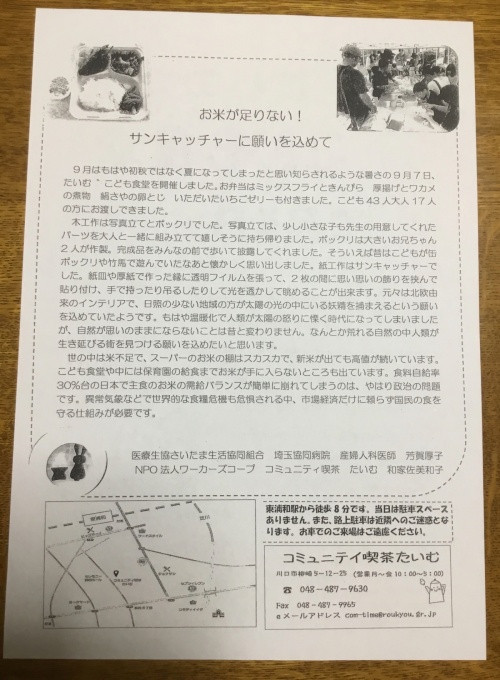 お米が足りない！
サンキャッチャーに願いを込めて
９月はもはや初秋ではなく夏になってしまったと思い知らされるような暑さの９月７日、
たいむ～こども食堂を開催しました。お弁当はミックスフライときんぴら　厚揚げとワカメ
の煮物　絹さやの卵とじ　いただいたいちごゼリーも付きました。こども４３人大人１７人
の方にお渡しできました。
木工作は写真立てとポックリでした。写真立ては、少し小さな子も先生の用意してくれた
パーツを大人と一緒に組み立てて嬉しそうに持ち帰りました。ポックリは大きいお兄ちゃん
２人が作製。完成品をみんなの前で歩いて披露してくれました。そういえば昔はこどもが缶
ポックリや竹馬で遊んでいたなあと懐かしく思い出しました。紙工作はサンキャッチャーで
した。紙皿や厚紙で作った縁に透明フイルムを張って、２枚の間に思い思いの飾りを挟んで
貼り付け、手で持ったり吊るしたりして光を透かして眺めることが出来ます。元々は北欧由
来のインテリアで、日照の少ない地域の方が太陽の光の中にいる妖精を捕まえるという願い
を込めていたようです。もはや温暖化で人類が太陽の怒りに慄く時代になってしまいました
が、自然が思いのままにならないことは昔と変わりません。なんとか荒れる自然の中人類が
生き延びる術を見つける願いを込めたいと思います。
世の中は米不足で、スーパーのお米の棚はスカスカで、新米が出ても高値が続いています。
こども食堂や中には保育園の給食までお米が手に入らないところも出ています。食料自給率
30％台の日本で主食のお米の需給バランスが簡単に崩れてしまうのは、やはり政治の問題
です。異常気象などで世界的な食糧危機も危惧される中、市場経済だけに頼らず国民の食を
守る仕組みが必要です。
医療生協さいたま生活協同組合　埼玉協同病院　産婦人科医師　芳賀厚子
NPO法人ワーカーズコープ　コミュニティ喫茶　たいむ　和家佐美和子
東浦和駅から徒歩８分です。当日は駐車スペース
ありません。また、路上駐車は近隣へのご迷惑とな
ります。お車でのご来場はご遠慮ください。
コミュニテイ喫茶たいむ
川口市柳崎５－１２－２５　（営業月～金 10：00～5：00）
☎　048－487－9630
Fax　048－487－9965
eメールアドレス　com-time@roukyou.gr.jp
東浦和